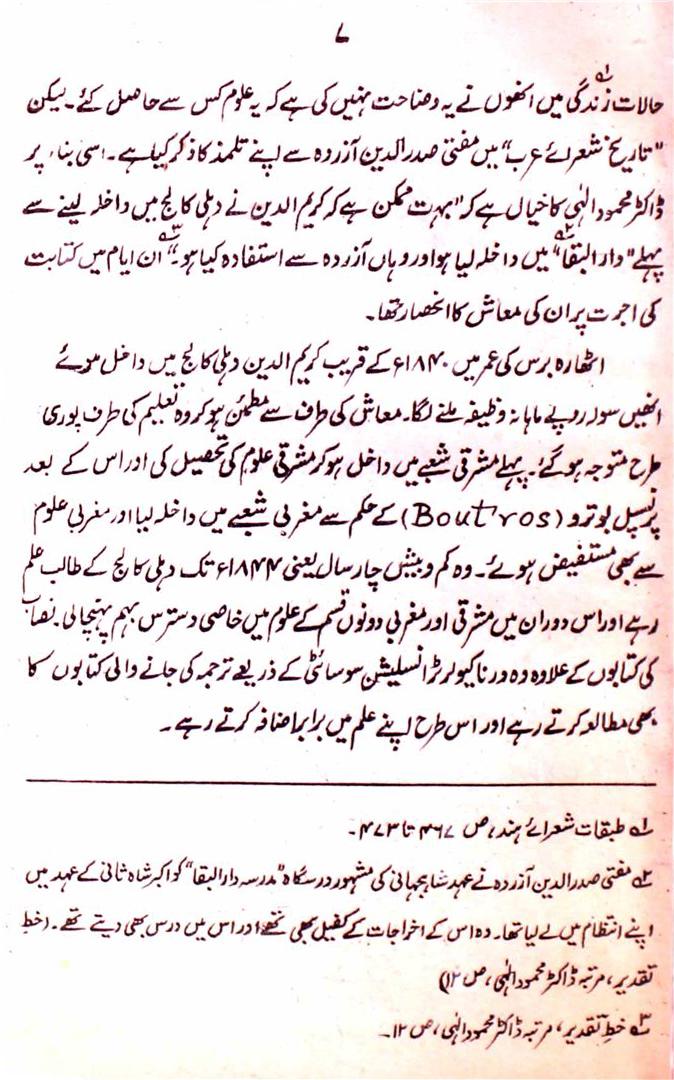 ۷
حالات زندگی میں انھوں نے یہ وضاحت نہیں کی ہے کہ یہ علوم کس سے حاصل کئے۔ لیکن
"تاریخ شعرائے عرب" میں مفتی صدرالدین آزردہ سے اپنے تلمذ کا ذکر کیا ہے۔ اسی بناء پر
ڈاکٹر محمود الٰہی کا خیال ہے کہ "بہت ممکن ہے کہ کریم الدین نے دہلی کالج میں داخلہ لینے سے
پہلے "دار البقا" میں داخلہ لیا ہو اور وہاں آزردہ سے استفادہ کیا ہو۔" ان ایام میں کتابت
کی اجرت پر ان کی معاش کا انحصار تھا۔
اٹھارہ برس کی عمر میں ۱۸۴۰ء کے قریب کریم الدین دہلی کالج میں داخل ہوئے
انھیں سولہ روپے ماہانہ وظیفہ ملنے لگا۔ معاش کی طرف سے مطمئن ہوکر وہ تعلیم کی طرف پوری
طرح متوجہ ہوگئے۔ پہلے مشرقی شعبے میں داخل ہوکر مشرقی علوم کی تحصیل کی اور اس کے بعد
پرنسپل بوترو (Bout'ros) کے حکم سے مغربی شعبے میں داخلہ لیا اور مغربی علوم
سے بھی مستفیض ہوئے۔ وہ کم و بیش چار سال یعنی ۱۸۴۴ء تک دہلی کالج کے طالب علم
رہے اور اس دوران میں مشرقی اور مغربی دونوں قسم کے علوم میں خاصی دسترس بہم پہنچالی۔ نصاب
کی کتابوں کے علاوہ وہ ورناکیولر ٹرانسلیشن سوسائٹی کے ذریعے ترجمہ کی جانے والی کتابوں کا
بھی مطالعہ کرتے رہے اور اس طرح اپنے علم میں برابر اضافہ کرتے رہے۔
۱؎ طبقات شعرائے ہند، ص ۴۶۷ تا ۴۷۳۔
۲؎ مفتی صدرالدین آزردہ نے عہد شاہجہانی کی مشہور درسگاہ "مدرسہ دارالبقا" کو اکبر شاہ ثانی کے عہد میں
اپنے انتظام میں لے لیا تھا۔ وہ اس کے اخراجات کے کفیل بھی تھے اور اس میں درس بھی دیتے تھے۔ (خط
تقدیر، مرتبہ ڈاکٹر محمود الٰہی، ص ۱۲)
۳؎ خطِ تقدیر، مرتبہ ڈاکٹر محمود الٰہی، ص ۱۲۔